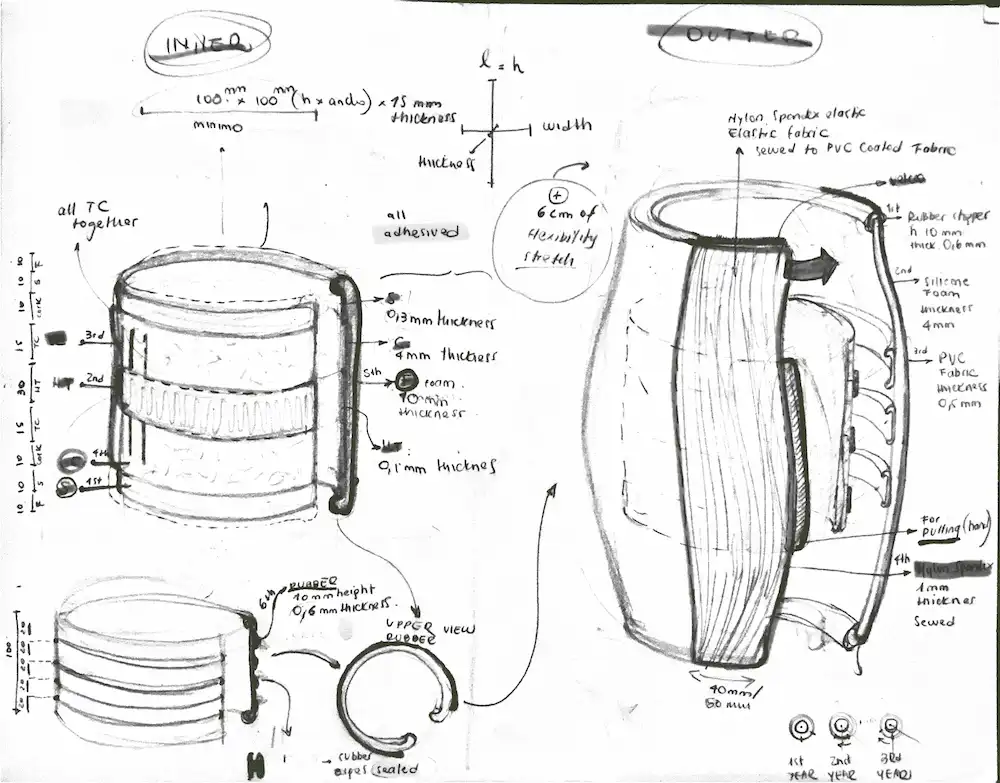 INNER
100 mm x 100 mm (h x ancho) x 15 mm
thickness
minimo
l = h
width
thickness
OUTTER
Nylon, Spandex elastic
Elastic fabric
sewed to PVC Coated Fabric
velcro
1st
Rubber stopper
h 10 mm
thick. 0,6mm
2nd
Silicone
Foam
thickness
4mm
3rd
PVC
Fabric
thickness
0,5 mm
+
6 cm of
flexibility
stretch
all TC
together
all
adhesived
10 10 10 15 30 15 10 10 10
F S cork TC HT TC cork S F
3rd
2nd
4th
1st
0,3mm thickness
4mm thickness
5th
foam.
10 mm
thickness
0,1mm thicknes
6th
RUBBER
10mm height
0,6mm thickness.
UPPER VIEW
RUBBER
100
20 20 20 20 20
rubber
sealed
For
pulling (hand)
4th
Nylon Spandex
1mm
thicknes
sewed
40mm/
50mm
1st
YEAR
2nd
YEAR
3rd
YEAR